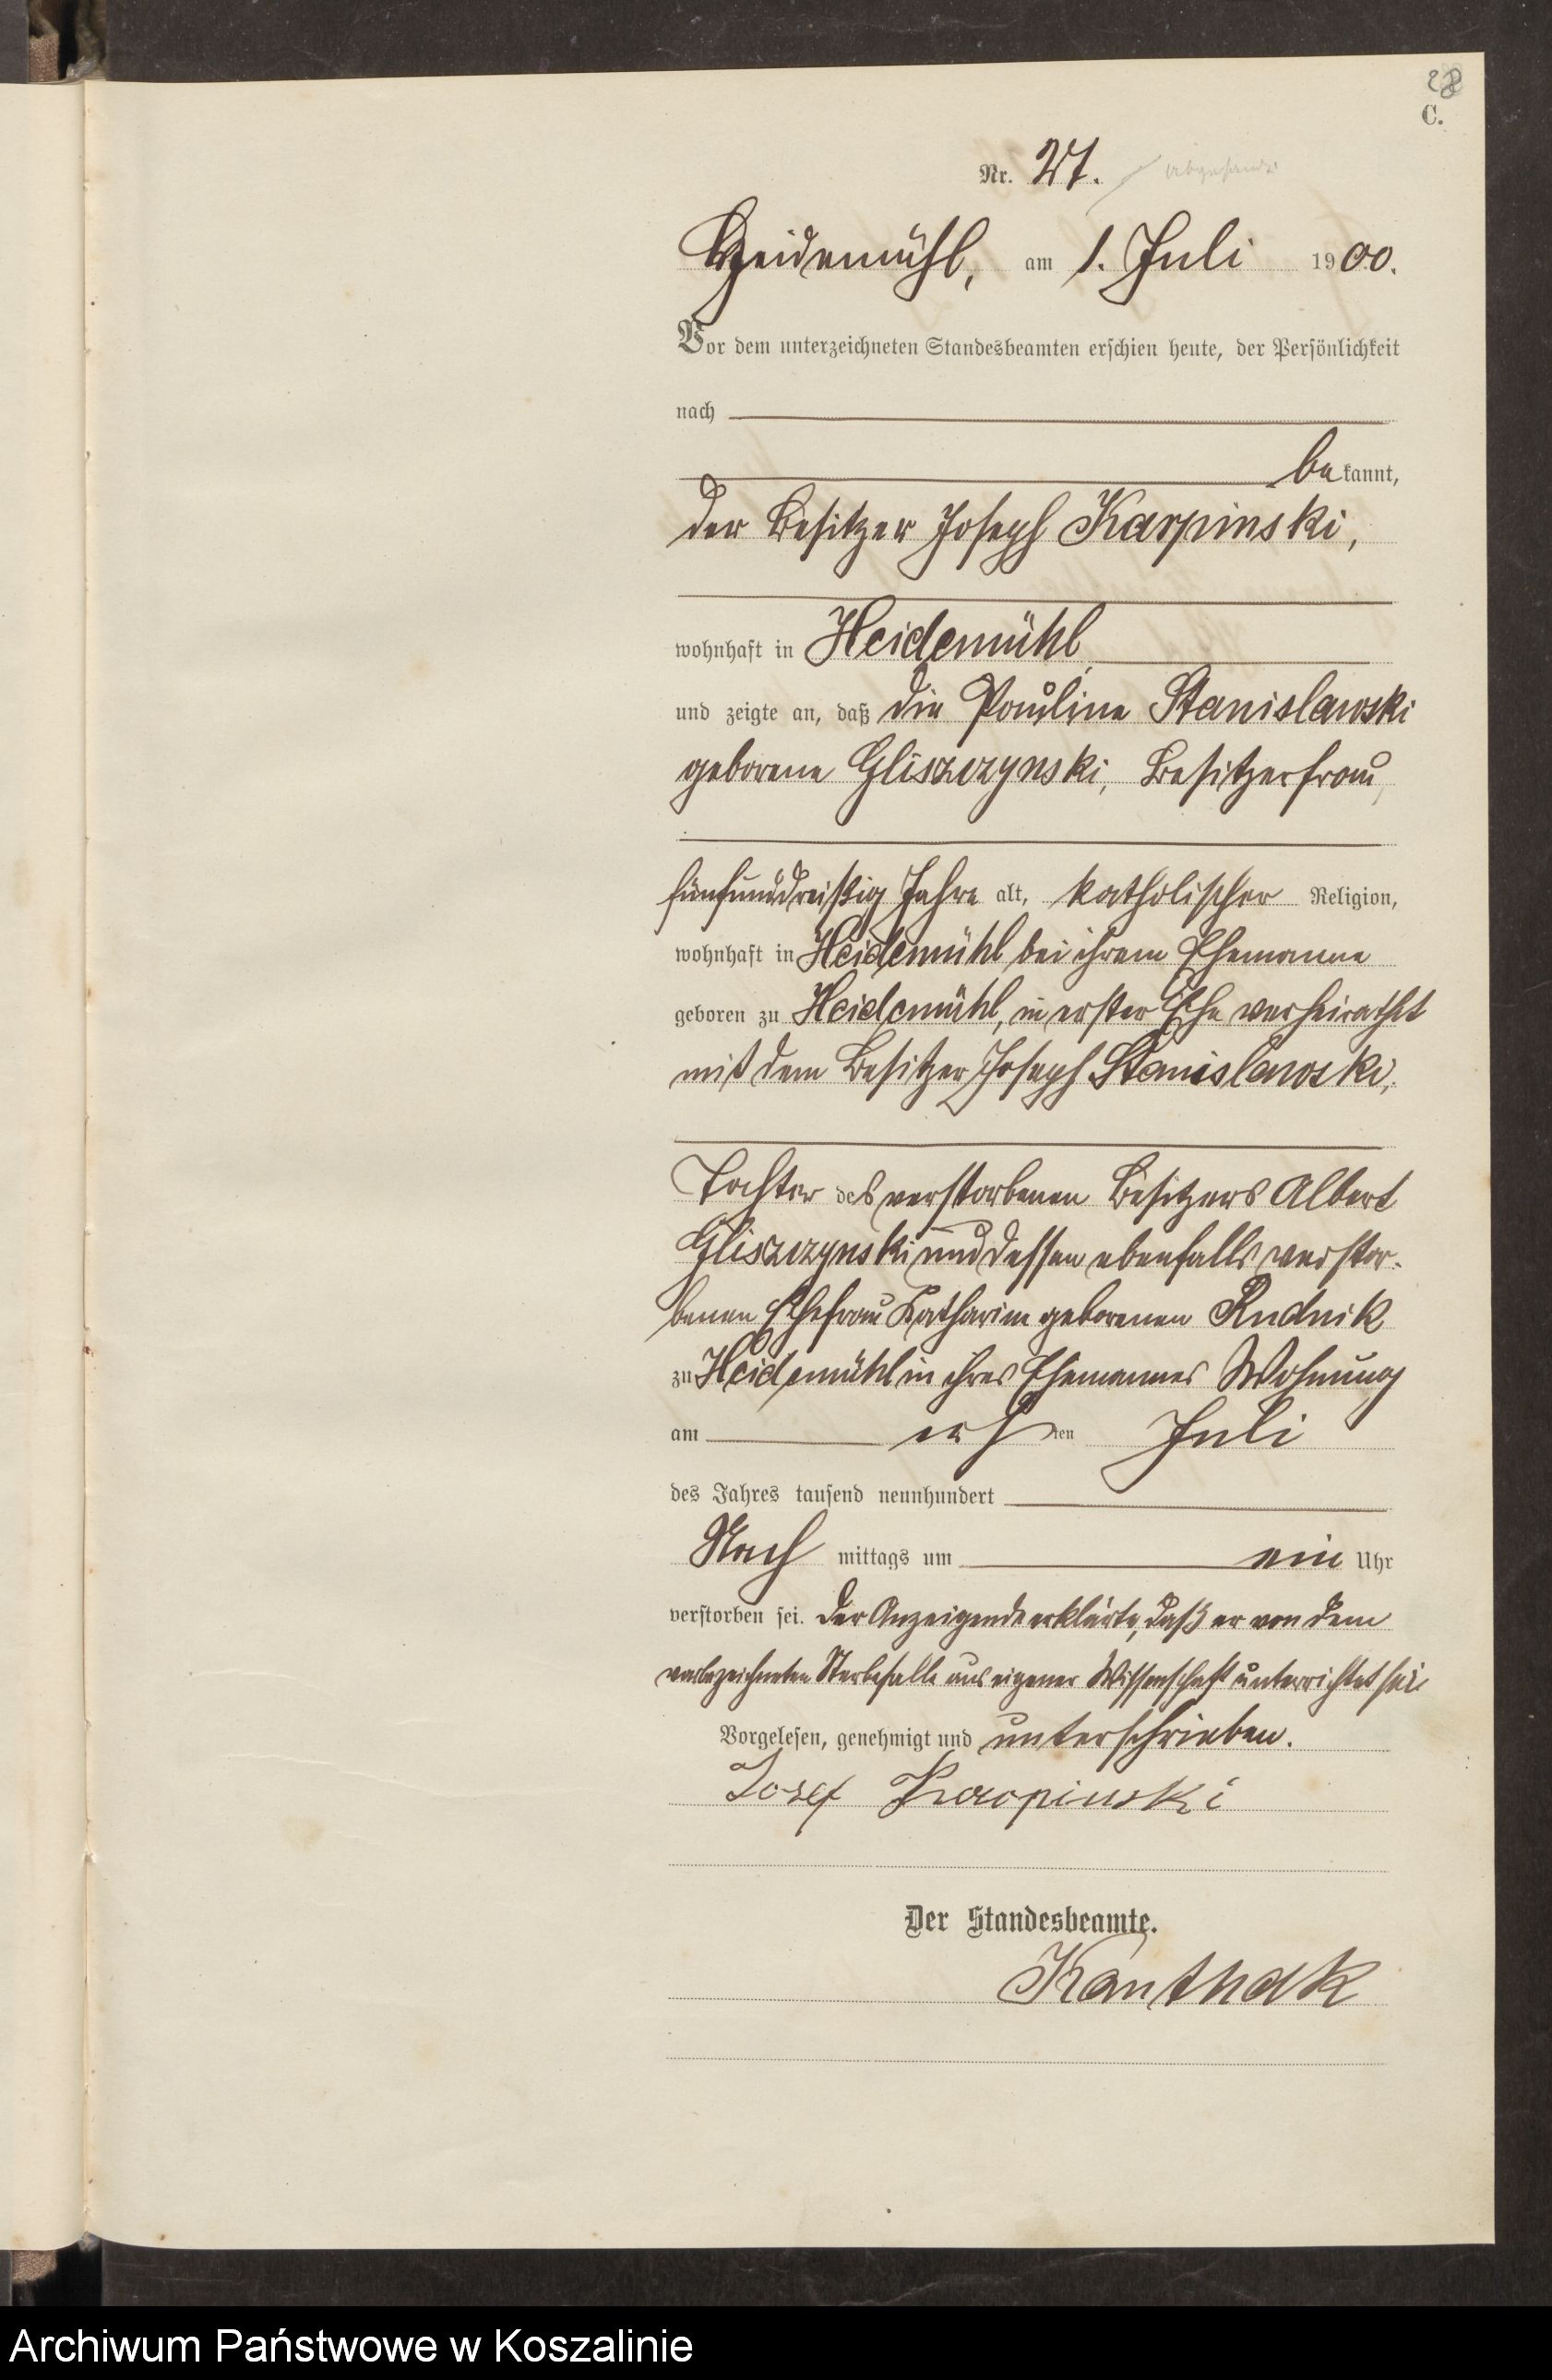 28
C.
Nr. 27. abgesandt
Heidemühl, am 1. Juli 1900.
Vor dem unterzeichneten Standesbeamten erschien heute, der Persönlichkeit
nach
be kannt,
der Besitzer Joseph Karpinski,
wohnhaft in Heidemühl,
und zeigte an, daß die Pauline Stanislawski
geborene Gliszczynski, Besitzerfrau,
fünfunddreißig Jahre alt, katholischer Religion,
wohnhaft in Heidemühl bei ihrem Ehemanne
geboren zu Heidemühl, in erster Ehe verheirathet
mit dem Besitzer Joseph Stanislawski,
Tochter des verstorbenen Besitzers Albert
Gliszczynski und dessen ebenfalls verstor-
benen Ehefrau Katharina geborenen Rudnik
zu Heidemühl in ihres Ehemannes Wohnung
am ersten Juli
des Jahres tausend neunhundert
Nach mittags um ein Uhr
verstorben sei. Der Anzeigende erklärte, daß er von dem
vorbezeichneten Sterbefalle aus eigener Wissenschaft unterrichtet sei.
Vorgelesen, genehmigt und unterschrieben.
Josef Karpinski
Der Standesbeamte.
Kanthak
Archiwum Państwowe w Koszalinie